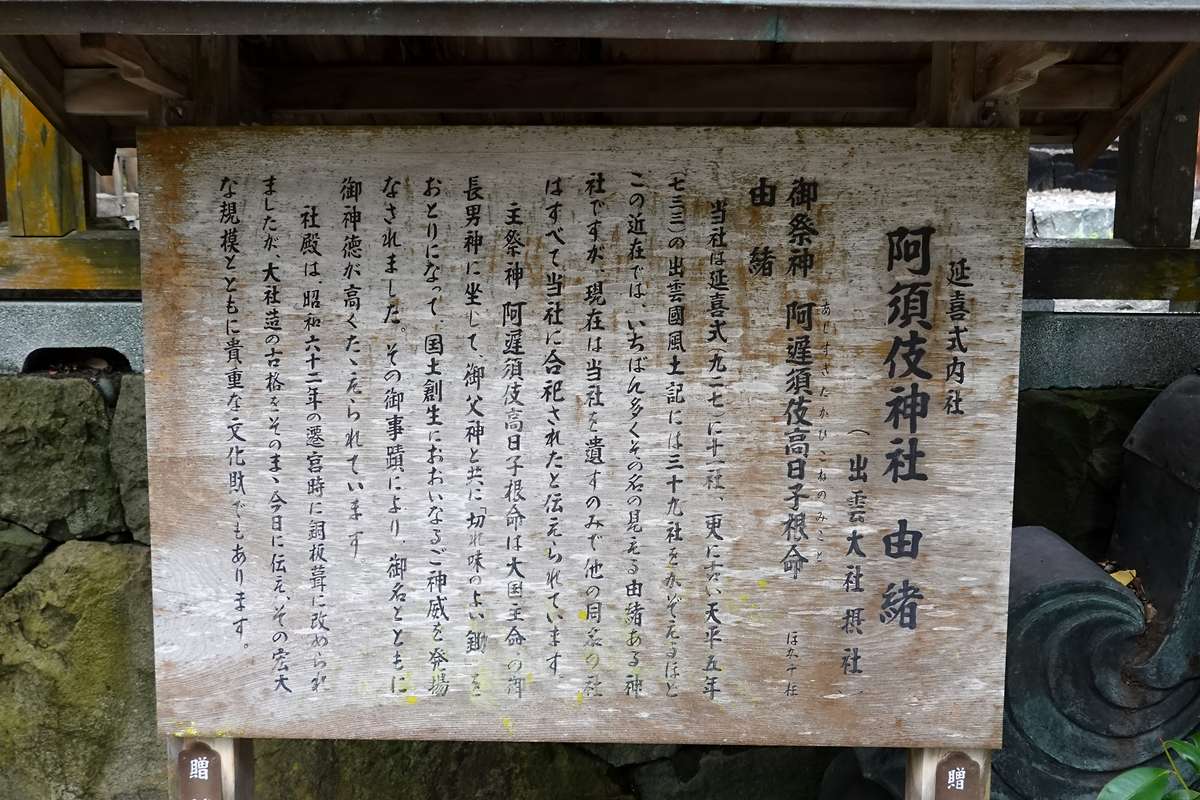 延喜式内社
阿須伎神社 由緒
（出雲大社摂社）
あじすきたかひこねのみこと
御祭神 阿遅須伎高日子根命 ほか五十柱
由緒
当社は延喜式(九二七)に十一社、更に古い天平五年
(七三三)の出雲國風土記には三十九社をかぞえるほと
この近在では、いちばん多くその名の見える由緒ある神
社ですが、現在は当社を遺すのみで他の同名の社
はすべて当社に合祀されたと伝えられています。
主祭神 阿遅須伎高日子根命は大国主命の御
長男神に坐して、御父神と共に「切れ味のよい鋤」を
おとりになって、国土創生におおいなるご神威を発揚
なされました。その御事蹟により、御名とともに
御神徳が高くたゝえられています。
社殿は、昭和六十二年の遷宮時に銅板葺に改められ
ましたが、大社造の古格をそのまゝ今日に伝え、その宏大
な規模とともに貴重な文化財でもあります。
贈
贈